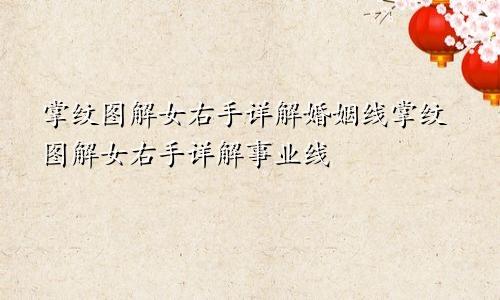 掌纹图解女右手详解婚姻线掌纹
图解女右手详解事业线